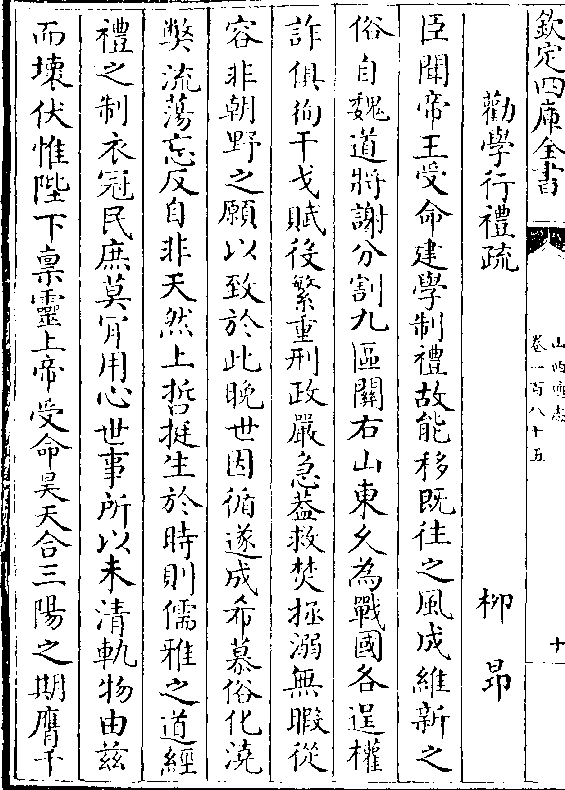 欽定四庫全書
山西通志
卷一百八十五
十
勸學行禮疏
柳昻
臣聞帝王受命建學制禮故能移既往之風成維新之
俗自魏道將謝分割九區關右山東久為戰國各逞權
詐俱徇干戈賦役繁重刑政嚴急葢救焚拯溺無暇從
容非朝野之願以致於此晚世因循遂成希慕俗化澆
弊流蕩忘反自非天然上哲挺生於時則儒雅之道經
禮之制衣冠民庶莫肎用心世事所以未清軌物由兹
而壊伏惟陛下禀靈上帝受命昊天合三陽之期膺千